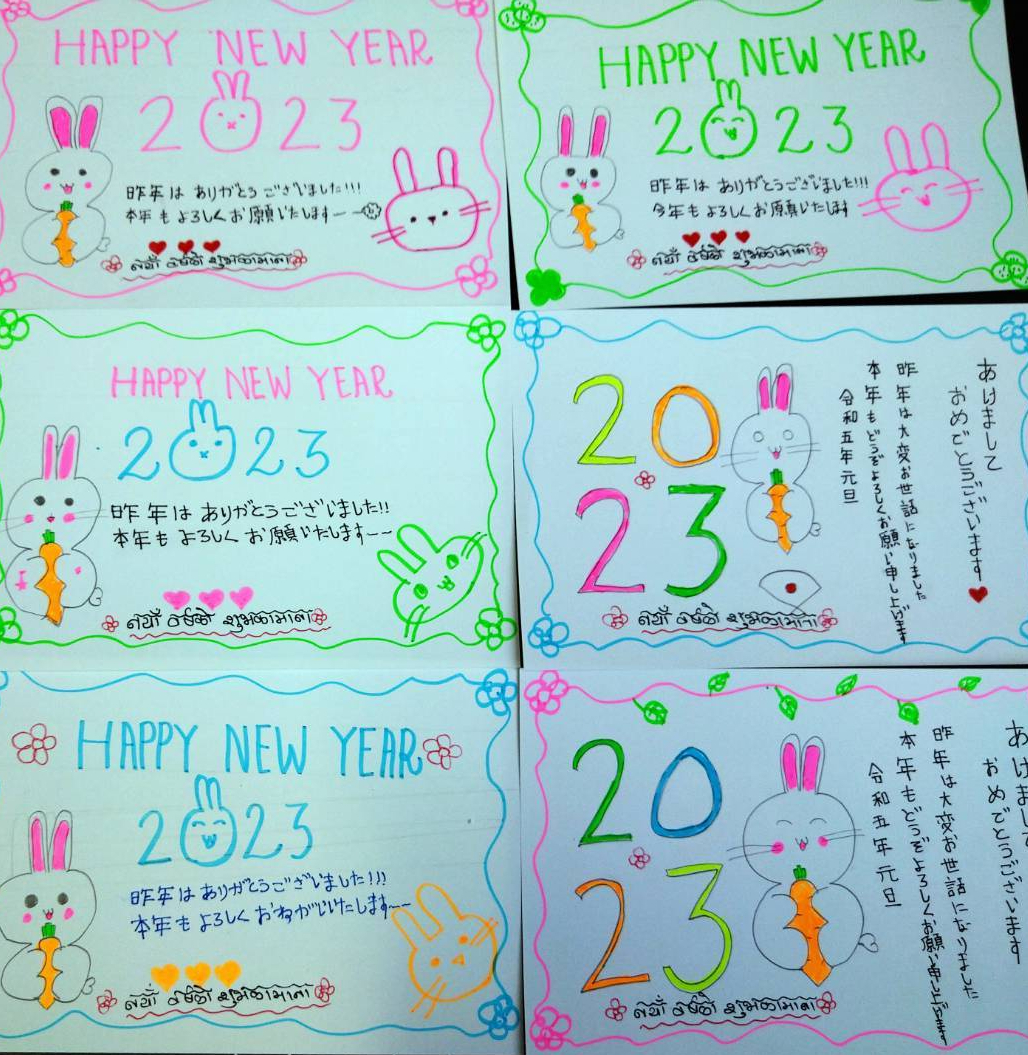 HAPPY NEW YEAR
2023
昨年は ありがとうございました!!!
本年もよろしくお願いたします—
नयाँ वर्षको शुभकामना
HAPPY NEW YEAR
2023
昨年は ありがとうございました!!!
今年もよろしくお願いたします
नयाँ वर्षको शुभकामना
HAPPY NEW YEAR
2023
昨年は ありがとうございました!!
本年も よろしく お願いたします~~
नयाँ वर्षको शुभकामना
20
23
あけまして
おめでとうございます
昨年は大変お世話になりました
本年もどうぞよろしくお願い申し上げます
令和五年元旦
नयाँ वर्षको शुभकामना
HAPPY NEW YEAR
2023
昨年はありがとうございました!!!
本年も よろしく おねがいいたします~~
नयाँ वर्षको शुभकामना
20
23
あけまして
おめでとうございます
昨年は大変お世話になりました
本年もどうぞよろしくお願い申し上げます
令和五年元旦
नयाँ वर्षको शुभकामना